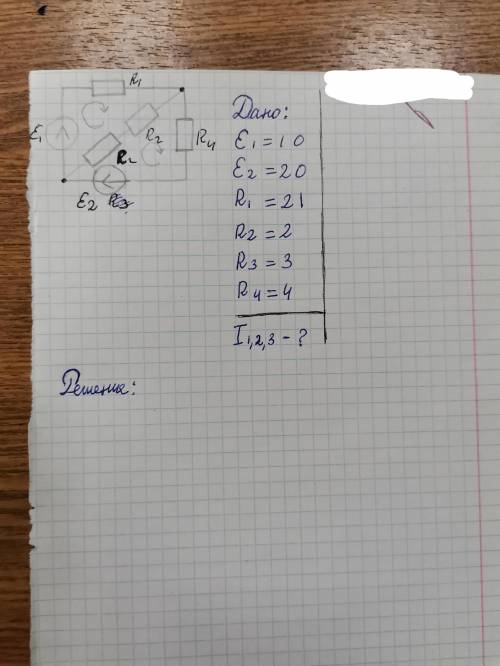 R1
E1
R2
R4
R2
E2
Дано:
E1 = 10
E2 = 20
R1 = 21
R2 = 2
R3 = 3
R4 = 4
I1,2,3 - ?
Решение: